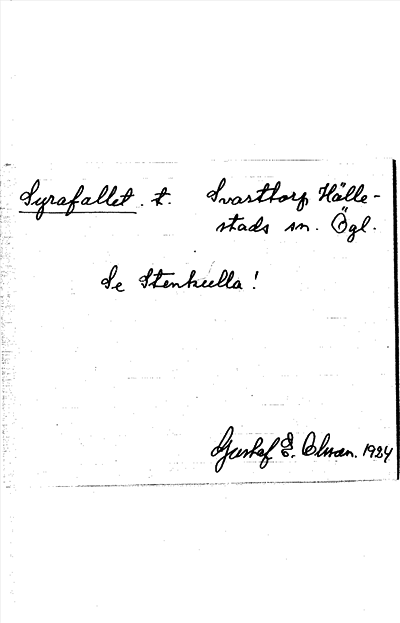 Syrafallet. t. Svarttorp Hälle-
stads sn. Ögl.
Se Stenkulla!
Gustaf E. Olson. 1924